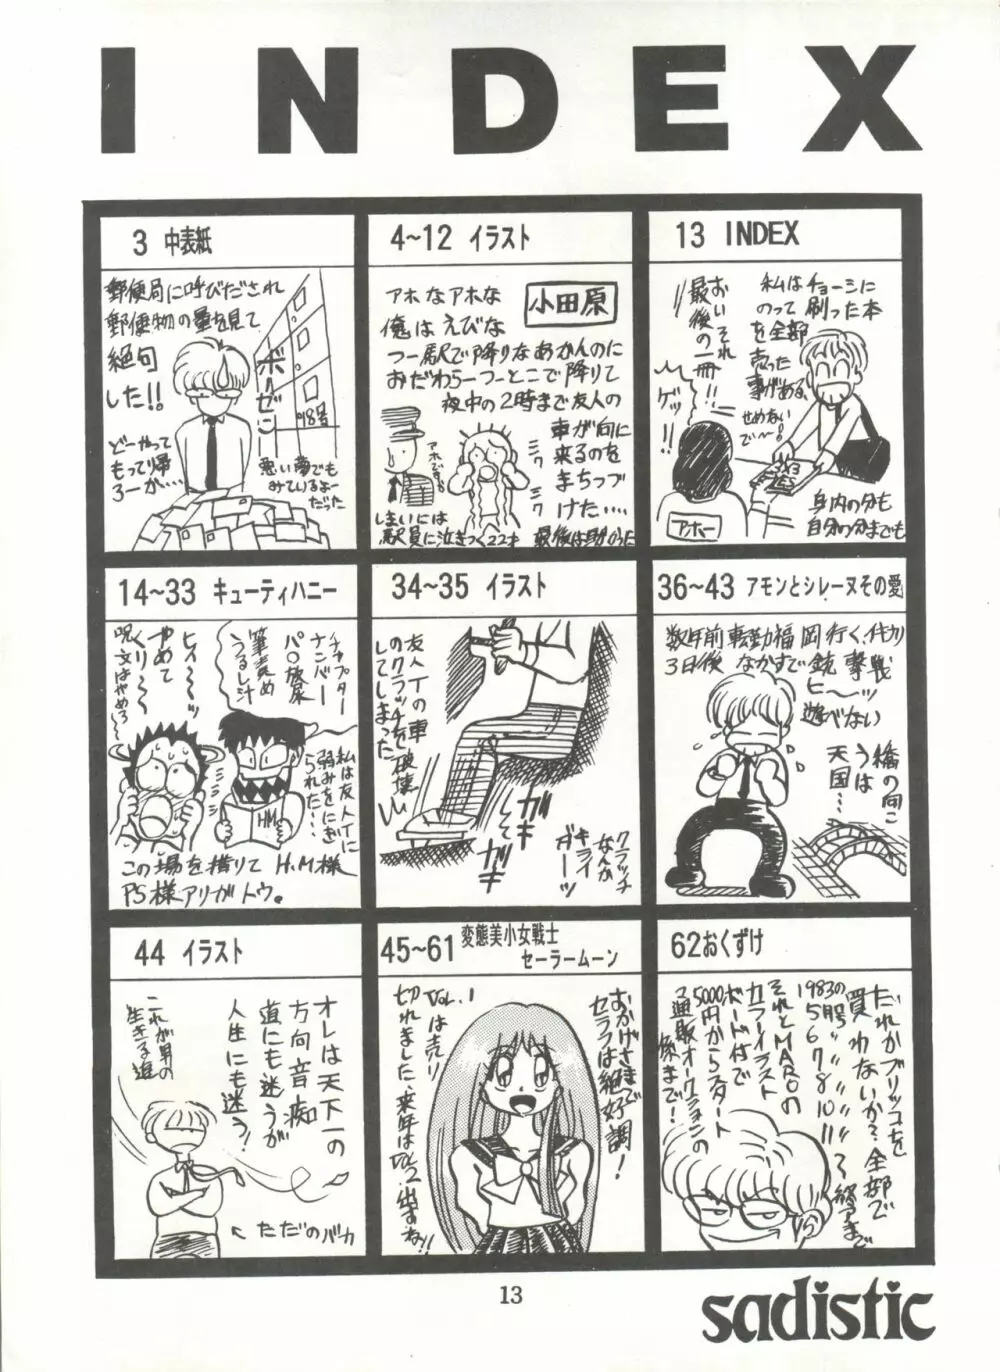 INDEX
3 中表紙
郵便局に呼びだされ
郵便物の量を見て
絶句
した!!
ボーゼン
98号
どーやって
もってり帰
ろーか……
悪い夢でも
みているよー
だった
4~12 イラスト
小田原
アホなアホな
俺はえびな
つー駅で降りなあかんのに
おだわらーつーとこで降りて
夜中の2時まで友人の
車が向に
来るのを
まちつづ
けた……
アホでっ
ミワ
ミワ
しまいには
駅員に泣きつく22才
13 INDEX
私はチョーシに
のって刷った本
を全部
売った
事がある、
せめないで~!
おいそれ
最後の一冊!!
ゲッ!!
アホー
身内の分も
自分の分までも
14~33 キューティハニー
チャプター
ナンバー
パ○放尿
筆責め
うるし汁
ヒィ~~ッ
やめて
くり~~
呪文はやめろ
私は友人Tに
弱みをにぎ
られた……
HM
この場を借りてH.M様
PS様アリガトウ。
34~35 イラスト
友人Tの車
のクラッチを破壊
してしまった
ガキ
してて
ガキ
クラッチ
なんか
キライ
ガーッ
36~43 アモンとシレーヌその愛
数年前転勤福岡行く、
3日後なかすで銃撃戦
ヒ~ッ
遊べない
橋の向こ
うは
天国…
44 イラスト
オレは天下一の
方向音痴
道にも迷うが
人生にも迷う!
これが男の
生きる道
←ただのバカ
45~61 変態美小女戦士
セーラームーン
おかげさまで
セラフは絶好調!
Vol.1は売り
切れました、来年はVol.2出すね!!
62おくずけ
だれかブリッコを
買わないか?全部で
1983の5月号〃6〃7〃8〃10〃11
それとMAROの
カラーイラスト
ボード付で
5000円からスタート
通販オークションの
13
sadistic